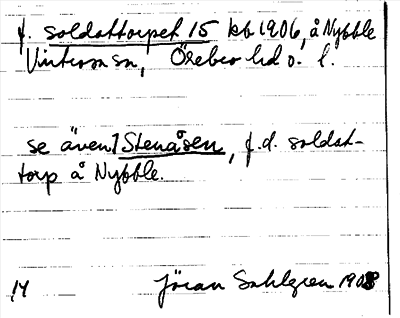 f. soldattorpet 15 kb 1906, å Nybble
Vintrosa sn, Örebro hd o. l.
se även] Stenåsen, f.d. soldat-
torp å Nybble.
14 Jöran Sahlgren 1908